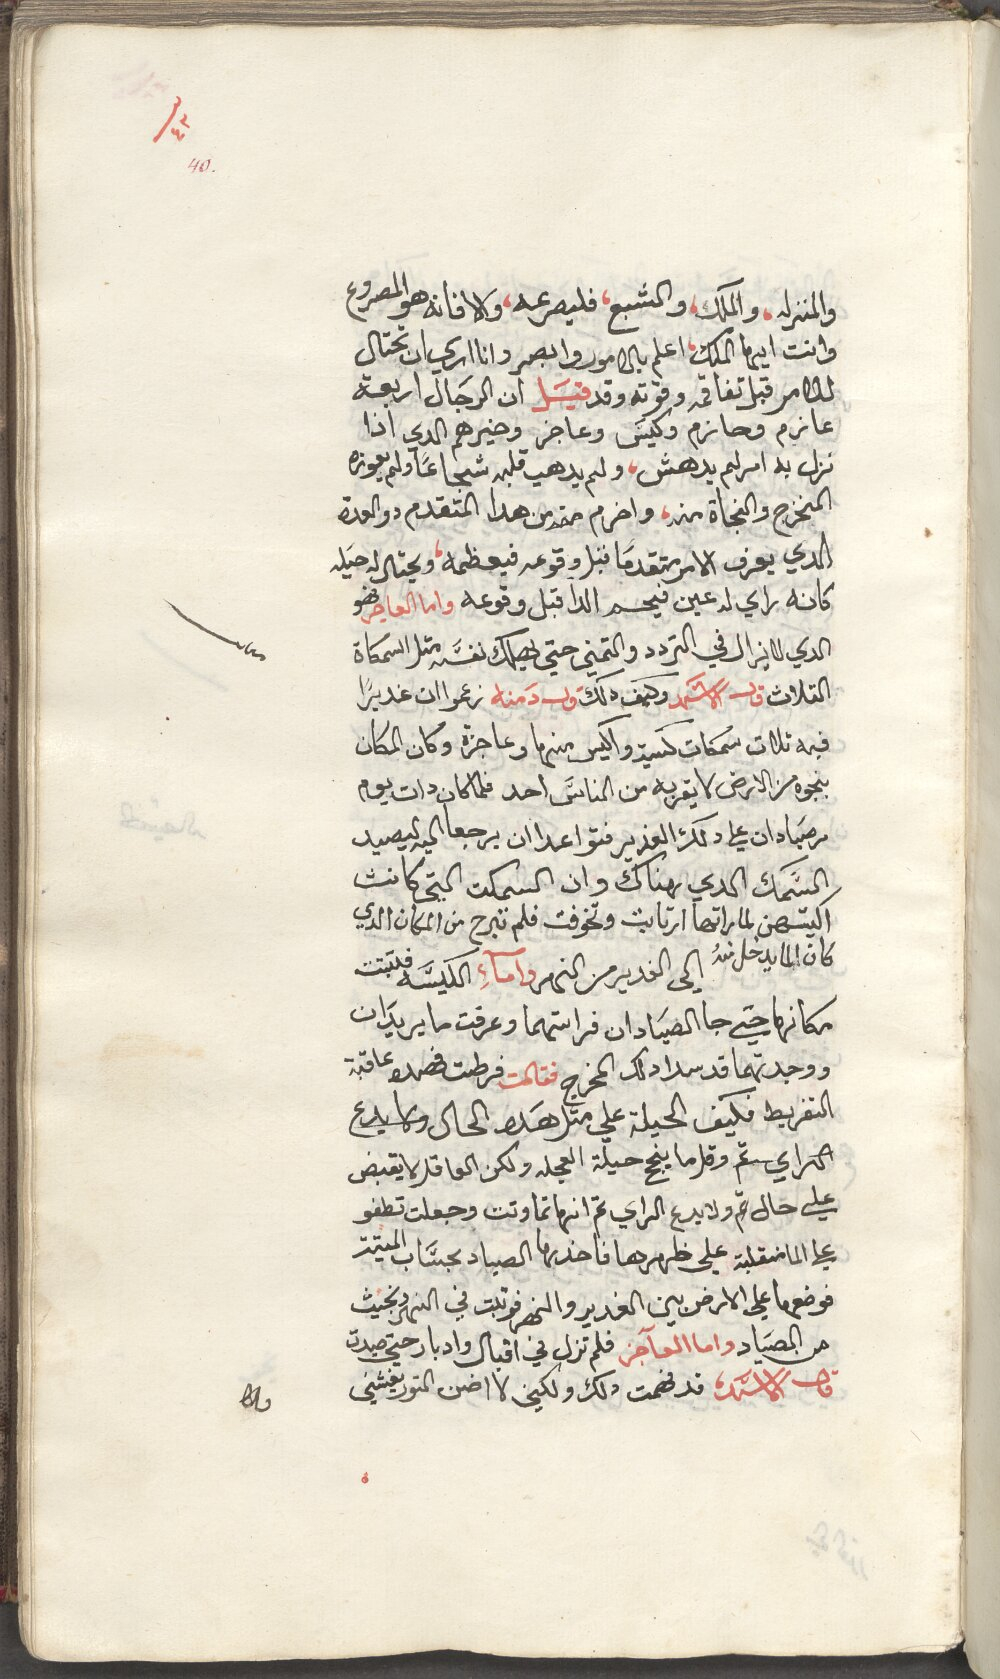 ٤٣
40.
والمنزله، والملك، والشبع، فليصرعه، ولا فانه هو المصروع
وانت ايها الملك، اعلم بالامور وابصر وانا اري ان تحتال
للامر قبل تفاقمه وقوته وقد قيل ان الرجال اربعة
عازم وحازم وكيس وعاجز وخيرهم الدي اذا
نزل به امر لم يدهش، ولم يدهب قلبه شجاعًا ولم يعوزه
المخرج والنجاة منه، واخزم من هدا المتقدم دو العدة
الدي يعرف الامر متقدمًا قبل وقوعه فيعظمه، ويحتال له حيله
كانه راي له عين فيحسم الدا قبل وقوعه واما العاجز فهو
الدي لا يزال في التردد والتمني حتي يهلك نفسه مثل السمكاة
التلات قال الاسد وكيف دلك قال دمنه زعموا ان غديرًا
فيه تلات سمكات كيسة واكيس منها وعاجزة وكان المكان
بنجوه من الارض لا يقربه من الناس احد فلما كان دات يوم
مر صيادان علي دلك الغدير فتواعدا ان يرجعا اليه ليصيد
السمك الدي هناك وان السمكت التي كانت
اكيسهن لما راتهما ارتابت وتخوفت فلم تبرح من المكان الدي
كان الما يدخل منه الي الغدير من النهر واماء الكيسه فلبتت
مكانها حتي جا الصيادان فراتهما وعرفت ما يريدان
ووجدتهما قد سدا دلك المخرج فقالت فرطت فهده عاقبة
التفريط فكيف الحيلة علي مثل هده الحال ولا يدع
الراي ثم وقل ما ينجح حيلة العجله ولكن العاقل لا يقبض
علي حال ثم ولا يدع الراي ثم انها تماوتت وجعلت تطفو
علي الما منقلبة علي ظهرها فاخدها الصياد بحساب الميتة
فوضعها علي الارض بين الغدير والنهر فوتبت في النهر ونجيت
من الصياد واما العاجز فلم تزل في اقبال وادبار حتي صيدت
قال الاسد، قد فهمت دلك ولكيني لا اضن التور يغشني
ولا